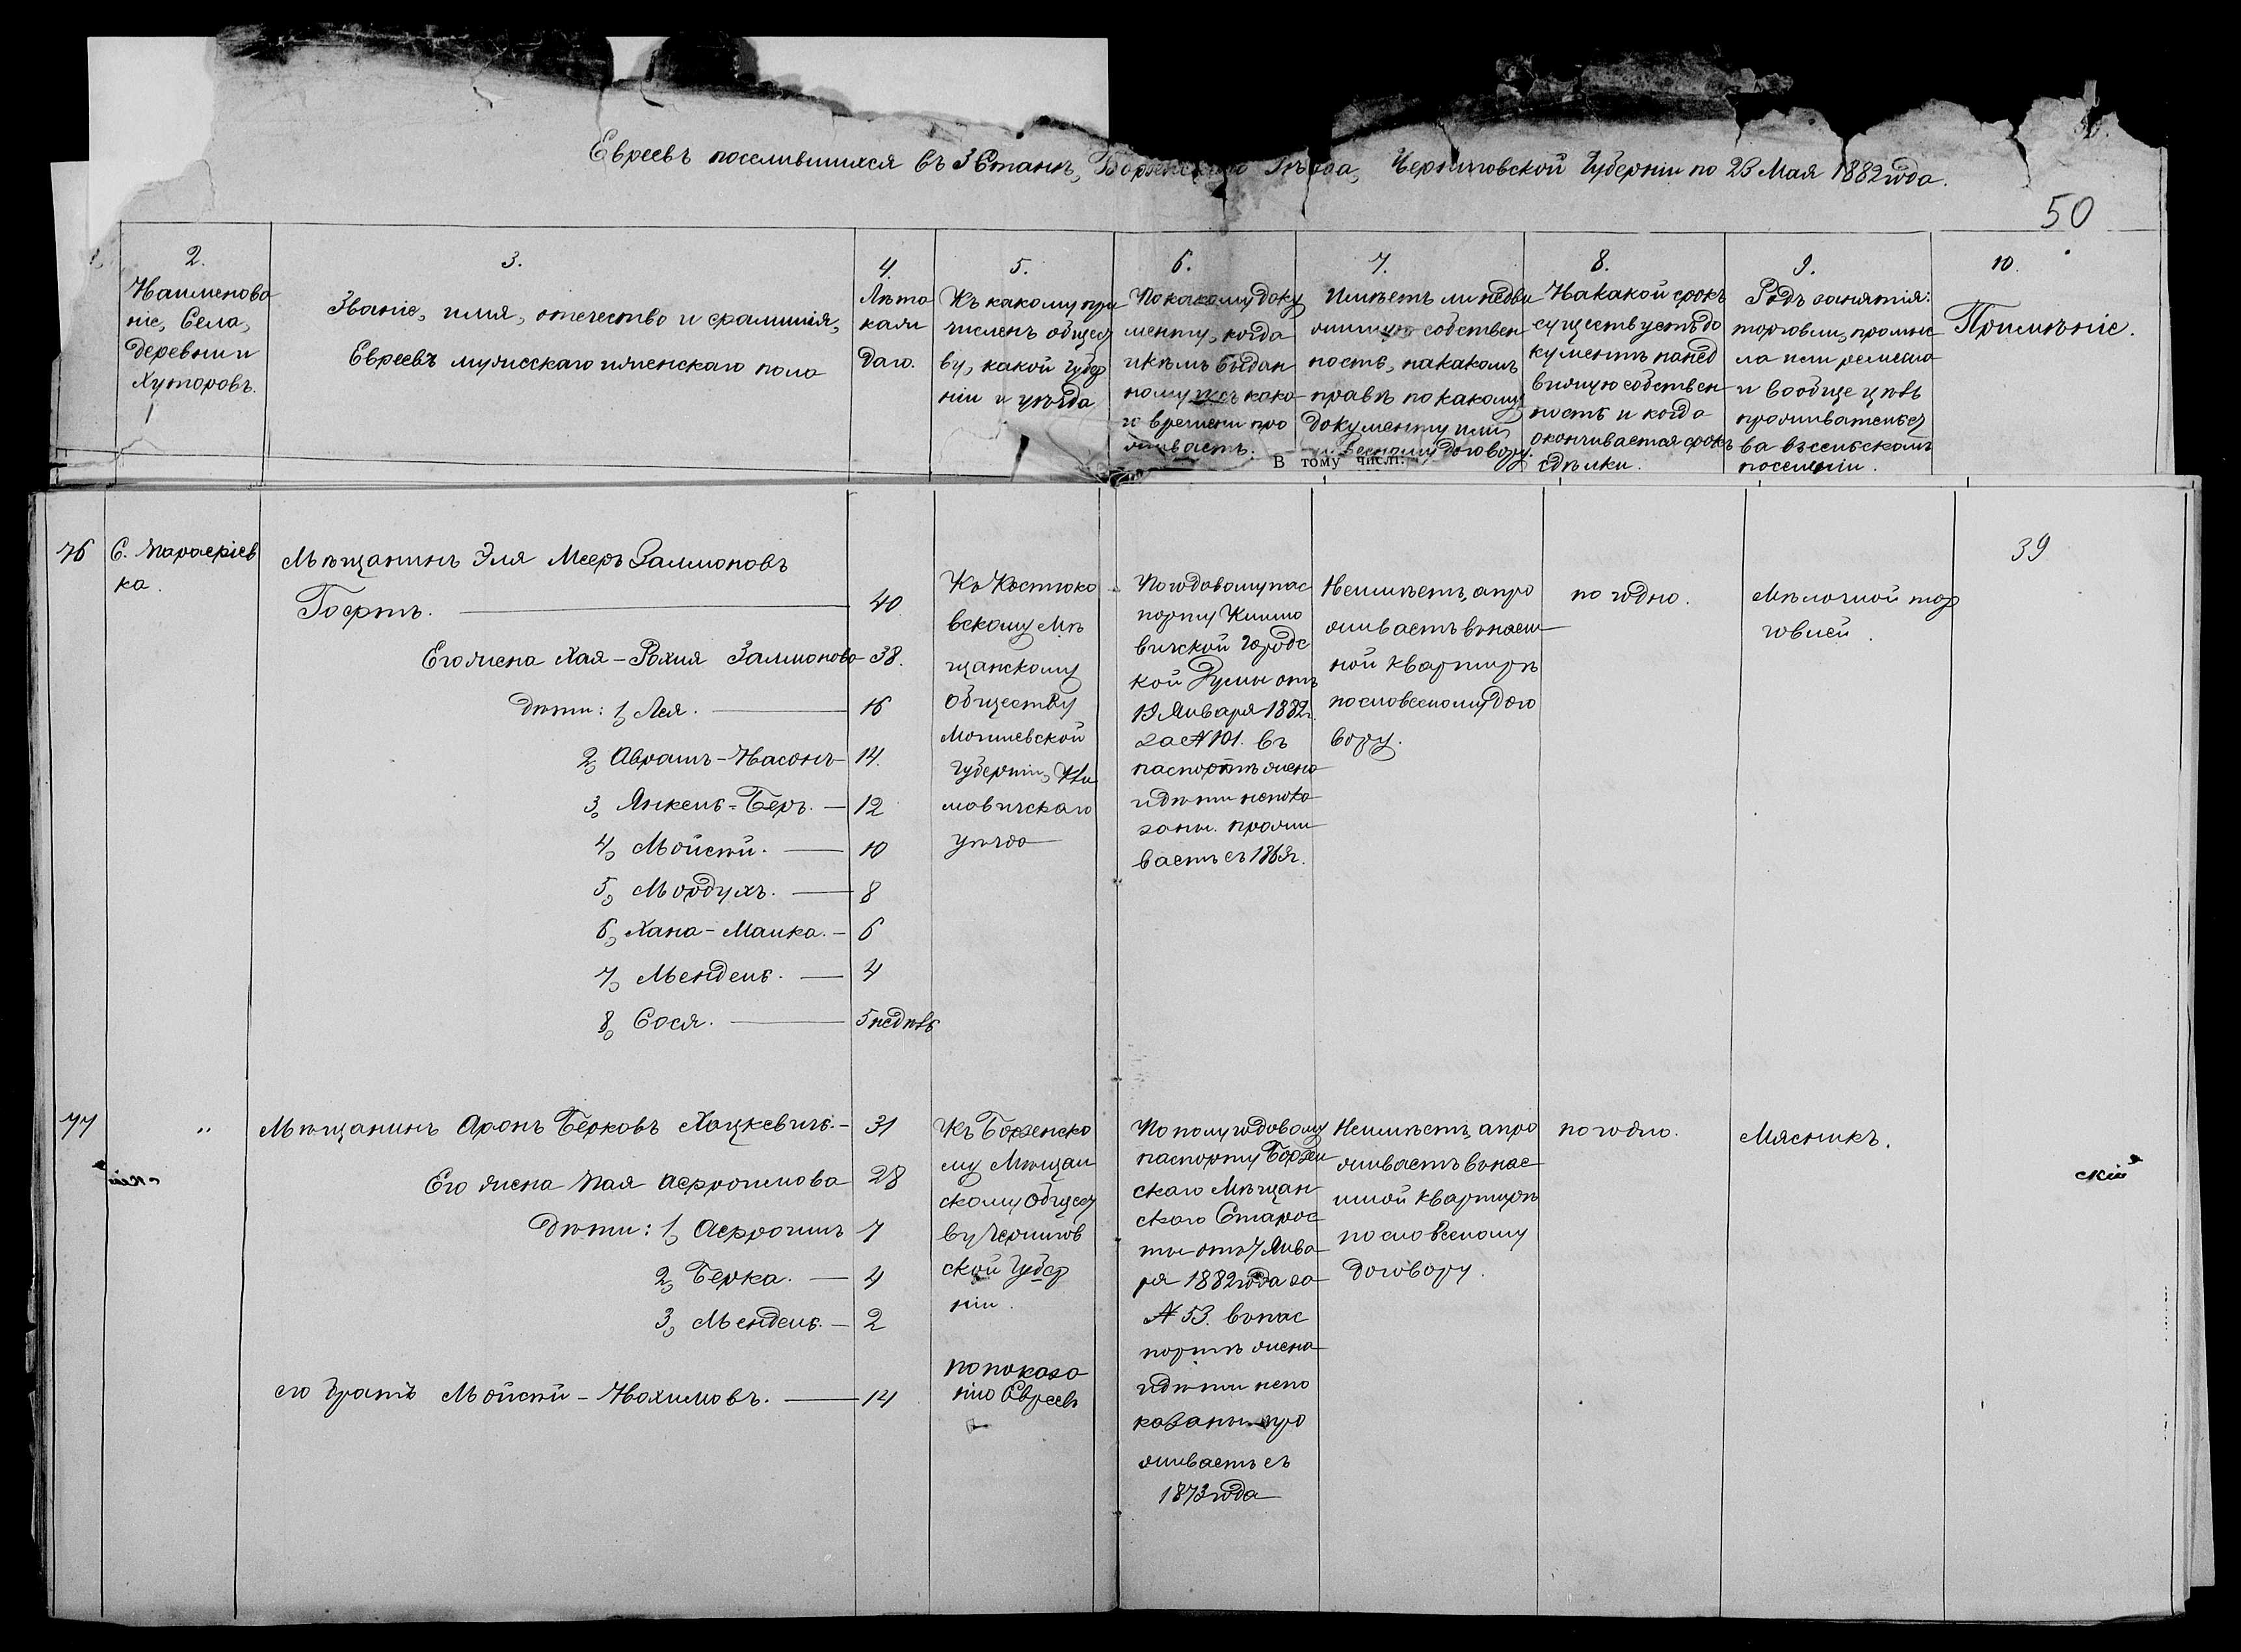 Евреевъ поселившихся въ 3 Станѣ, Борзенскаго Уѣзда, Черниговской Губерніи по 23 Мая 1882 года.
50
2.
Наименова
ніе, Села,
Деревни и
Хуторовъ.
3.
Званіе, имя, отечество и фамилія,
Евреевъ мужескаго и женскаго пола
4.
Лѣта
каж
даго.
5.
Къ какому при
численъ общест
ву, какой Губер
ніи и уѣзда
6.
По какому доку
менту, когда
и кѣмъ выдан
ному и съ како
го времени про
живаетъ.
7.
Имѣетъ ли недви
жимую собствен
ность, на какомъ
правѣ по какому
документу или
словесному договору.
В тому числі:
8.
На какой срокъ
существуетъ до
кументъ на нед
вижую собствен
ность и когда
оканчивается срокъ
сдѣлки.
9.
Родъ занятія:
торговли, промыс
ла или ремесла
и вообще цѣль
прожительст
ва въ сельскомъ
поселеніи.
10.
Примѣніе.
39
76
С. Парафіев
ка.
Мѣщанинъ Эля Мееръ Залмановъ
Гоертъ. 40
Его жена Хая-Рохля Залманова 38.
Дѣти: 1, Лея. 16
2, Абрамъ-Насонъ 14.
3, Янкель-Беръ. 12
4, Мойсѣй. 10
5, Мордухъ. 8
6, Хана-Малка. 6
7, Мендель. 4
8, Сося. 5 недѣль
Къ Костюко
вскому Мѣ
щанскому
обществу
Могилевской
Губерніи, Кли
мовичскаго
уѣзда
По годовому пас
порту Климо
вичской Городс
кой Думы отъ
19 Января 1882г.
за № 101. въ
паспортѣ жена
и дѣти не пока
заны. прожи
ваетъ съ 1869г.
Не имѣетъ, а про
живаетъ въ наем
ной квартирѣ
по словесному дого
вору.
по годно.
Мѣлочной тор
говлей.
77
"
Мѣщанинъ Аронъ Берковъ Хацкевичъ. 31
Его жена Пая Афроимова 28
Дѣти: 1, Афроимъ 7
2, Берка. 4
3, Мендель. 2
его братъ Мойсѣй-Нохимовъ. 14
Къ Борзенско
му Мѣщан
скому Общест
ву Чернигов
ской Губер
ніи.
по показа
нію Евреевъ
По полугодовому
паспорту Борзен
скаго Мѣщан
скаго Старос
ты отъ 7 Янва
ря 1882 года за
№ 53. въ пас
портѣ жена
и дѣти непо
казаны. про
живаетъ съ
1873 года
Не имѣетъ, а про
живаетъ въ нае
мной квартирѣ
по словесному
договору.
по годно.
Мясникъ.
скій